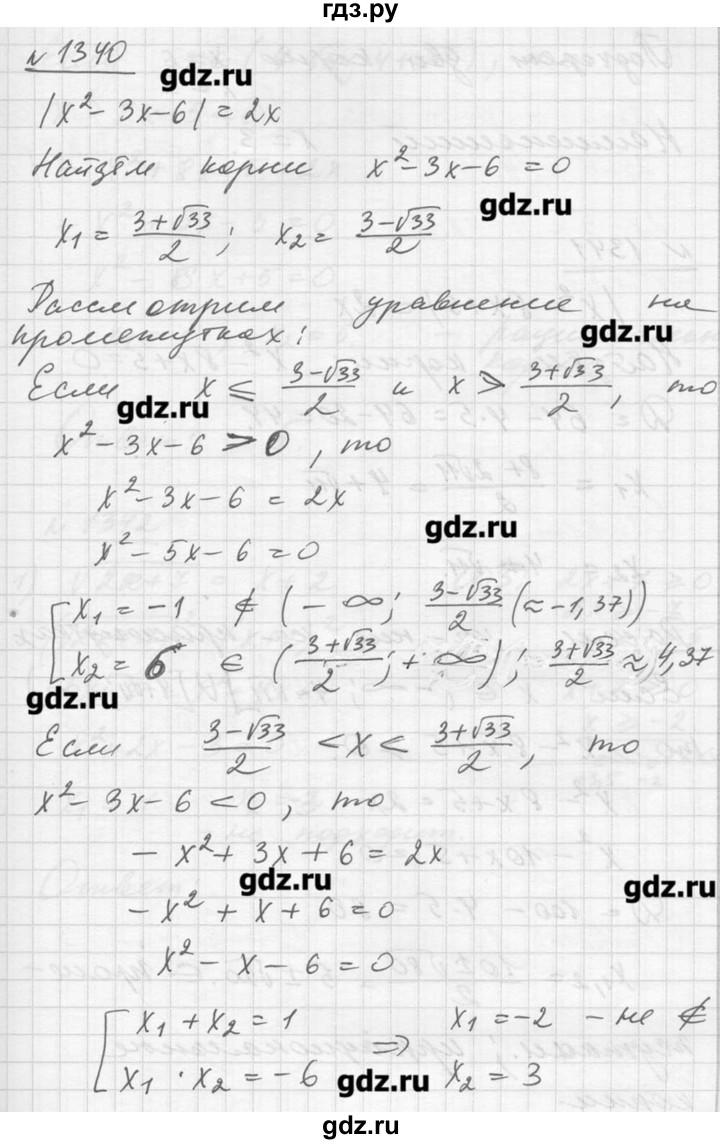 гдз.ру
№ 1340
gdz.ru
|x² - 3x - 6| = 2x
Найдём корни x² - 3x - 6 = 0
gdz.ru
x₁ = (3+√33)/2; x₂ = (3-√33)/2
Рассмотрим уравнение на
gdz.ru
промежутках:
Если x ⩽ (3-√33)/2 и x ⩾ (3+√33)/2, то
gdz.ru
x² - 3x - 6 > 0, то
x² - 3x - 6 = 2x
gdz.ru
x² - 5x - 6 = 0
[ x₁ = -1 ∉ (-∞; (3-√33)/2 (≈ -1,37))
x₂ = 6 ∈ ((3+√33)/2; +∞); (3+√33)/2 ≈ 4,37
gdz.ru
Если (3-√33)/2 < x < (3+√33)/2, то
x² - 3x - 6 < 0, то
- x² + 3x + 6 = 2x
gdz.ru
gdz.ru
- x² + x + 6 = 0
x² - x - 6 = 0
[ x₁ + x₂ = 1 ⇒ x₁ = -2 - не ∉
x₁ · x₂ = -6 x₂ = 3
gdz.ru
gdz.ru